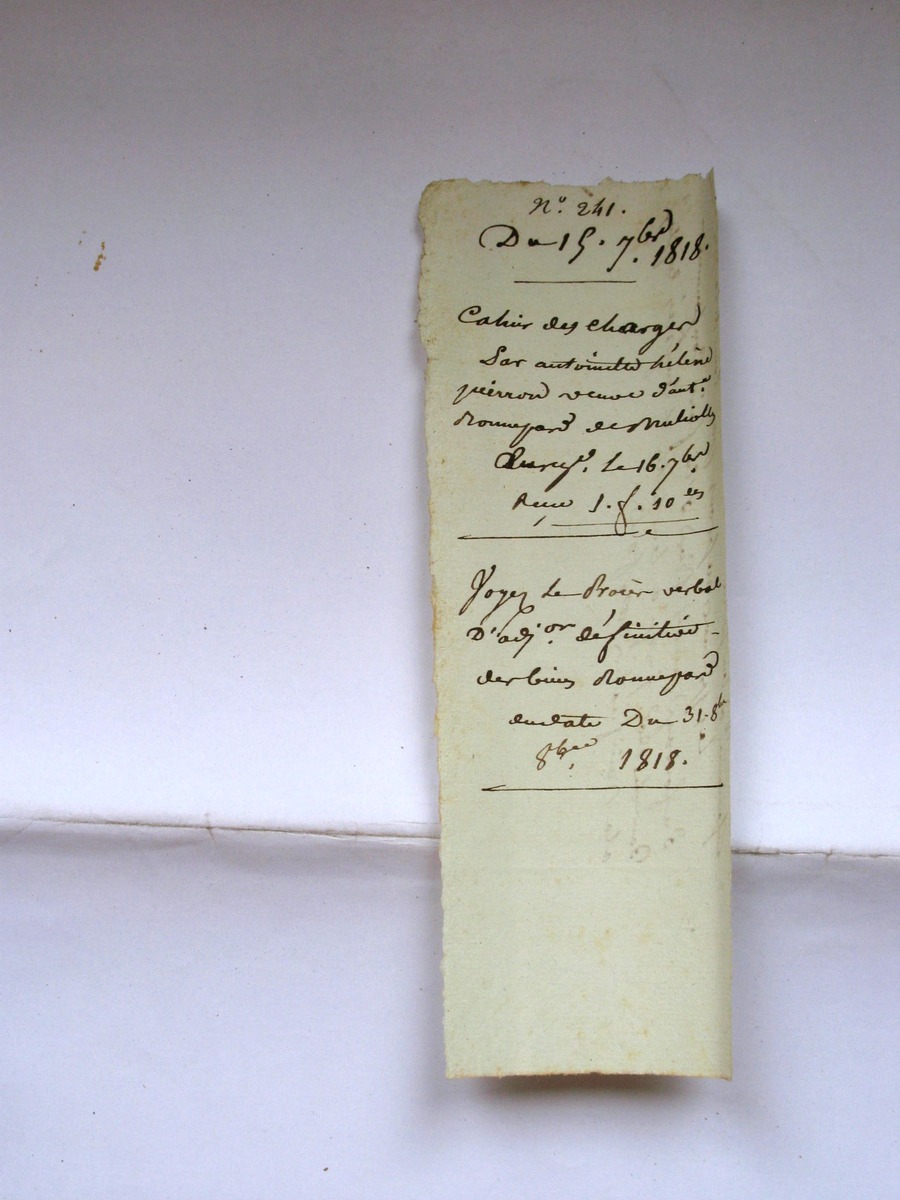 N.° 241.
Du 15. 7.bre 1818.
Cahier des charges
Par antoinette hélène
pierron veuve d'ant.e
Ronnepard de
Enreg.é le 16. 7.bre
Reçu 1. f. 10 c.es
Voyez Le Procès verbal
D'adj.on définitive
des biens Ronnepard
en date Du 31. 8.bre
8.bre 1818.